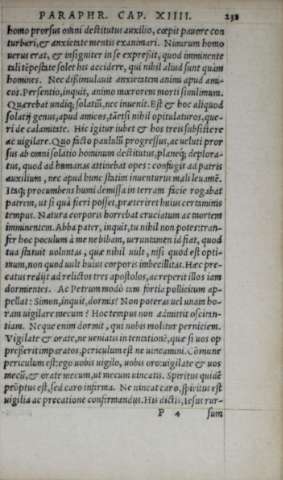 PARAPHR. CAP. XIIII. 232
homo prorsus omni destitutus auxilio, cœpit pauore con
turberi, & anxietate mentis exanimari. Nimirum homo
uerus erat, & insigniter in se expressit, quod imminente
tali tēpestate solet his accidere, qui nihil aliud sunt quàm
homines. Nec dissimulauit anxietatem animi apud ami-
cos. Persentio, inquit, animo mœrorem morti simillimum.
Quærebat undiq; solatiū, nec inuenit. Est & hoc aliquod
solatij genus, apud amicos, tāetsi nihil opitulaturos, que-
ri de calamitate. His igitur iubet & hos treis subsistere
ac uigilare. Quo facto paululū progressus, ac ueluti pror
sus ab omni solatio hominum destitutus, planeq; deplora-
tus, quod ad humanas attinebat opes: confugit ad patris
auxilium, nec apud hunc statim inuenturus mali leuamē.
Itaq; procumbens humi demissa in terram facie rogabat
patrem, ut si quà fieri posset, præteriret huius certaminis
tempus. Natura corporis horrebat cruciatum ac mortem
imminentem. Abba pater, inquit, tu nihil non potes: tran-
fer hoc poculum à me nibbam, ueruntamen id fiat, quod
tua statuit uoluntas, quæ nihil uult, nisi quod est opti-
mum, non quod uult huius corporis imbecillitas. Hæc pre-
catus redijt ad relictos tres apostolos, ac reperit illos iam
dormientes. Ac Petrum modò tam fortia pollicitum ap-
pellat: Simon, inquit, dormis? Non poteras uel unam ho-
ram uigilare mecum? Hoc tempus non admittit oscitan-
tiam. Neque enim dormit, qui uobis molitur perniciem.
Vigilate & orate, ne ueniatis in tentationē, quæ si uos op
presserit imparatos, periculum est ne uincamini. Cōmune
periculum est: ego uobis uigilo, uobis oro: uigilate & uos
mecū, & orate mecum, ut mecum uincatis. Spiritus quidē
prōptus est, sed caro infirma. Ne uincat caro, spiritus est
uigilia ac precatione confirmandus. His dictis, Iesus rur-
P 4 sum